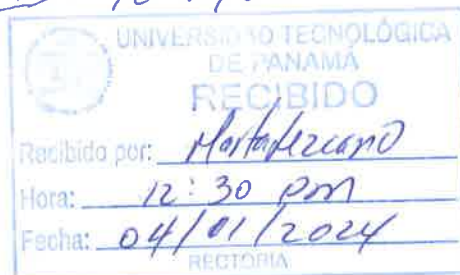 UNIVERSIDAD TECNOLÓGICA
DE PANAMÁ
RECIBIDO
Recibido por:
Hora: 12:30 pm
Fecha: 04/01/2024
RECTORIA